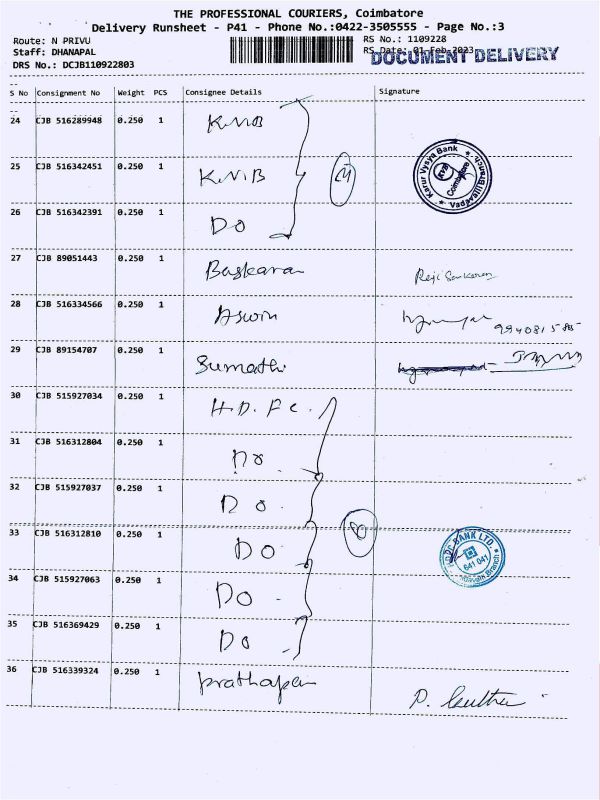 THE PROFESSIONAL COURIERS, Coimbatore
Delivery Runsheet - P41 - Phone No.:0422-3505555 - Page No.:3
Route: N PRIVU
RS No.: 1109228
Staff: DHANAPAL
RS Date: 01-Feb-2023
DOCUMENT DELIVERY
DRS No.: DCJB110922803
S No Consignment No Weight PCS Consignee Details Signature
24 CJB 516289948 0.250 1 K.V.B
25 CJB 516342451 0.250 1 K.V.B
Karur Vysya Bank
KVB
Coimbatore
Vadavalli Branch
26 CJB 516342391 0.250 1 DO
27 CJB 89051443 0.250 1 Baskaran
28 CJB 516334566 0.250 1 Aswin
29 CJB 89154707 0.250 1 Sumathi
30 CJB 515927034 0.250 1 H.D.F.C.
31 CJB 516312804 0.250 1 DO.
32 CJB 515927037 0.250 1 DO.
33 CJB 516312810 0.250 1 DO
HDFC BANK LTD.
641 041
Branch
34 CJB 515927063 0.250 1 DO -
35 CJB 516369429 0.250 1 DO
36 CJB 516339324 0.250 1 Prathapan